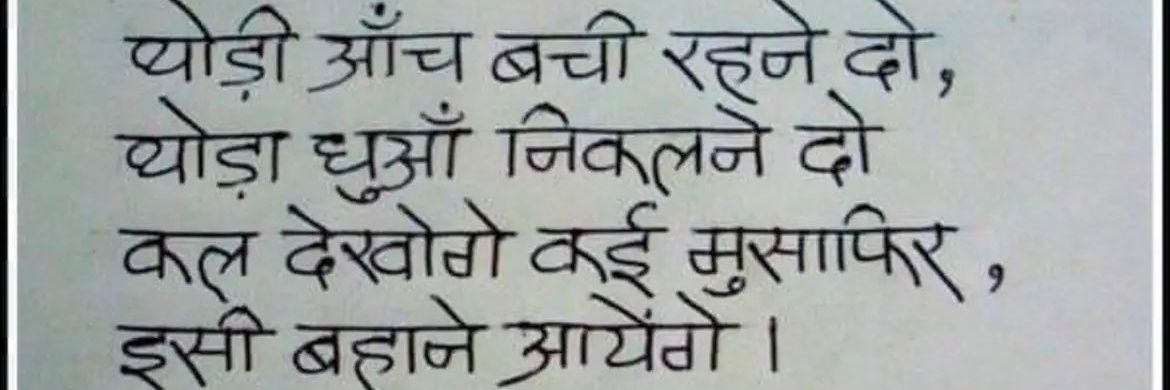 थोड़ी आँच बची रहने दो,
थोड़ा धुआँ निकलने दो
कल देखोगे कई मुसाफिर,
इसी बहाने आयेंगे।